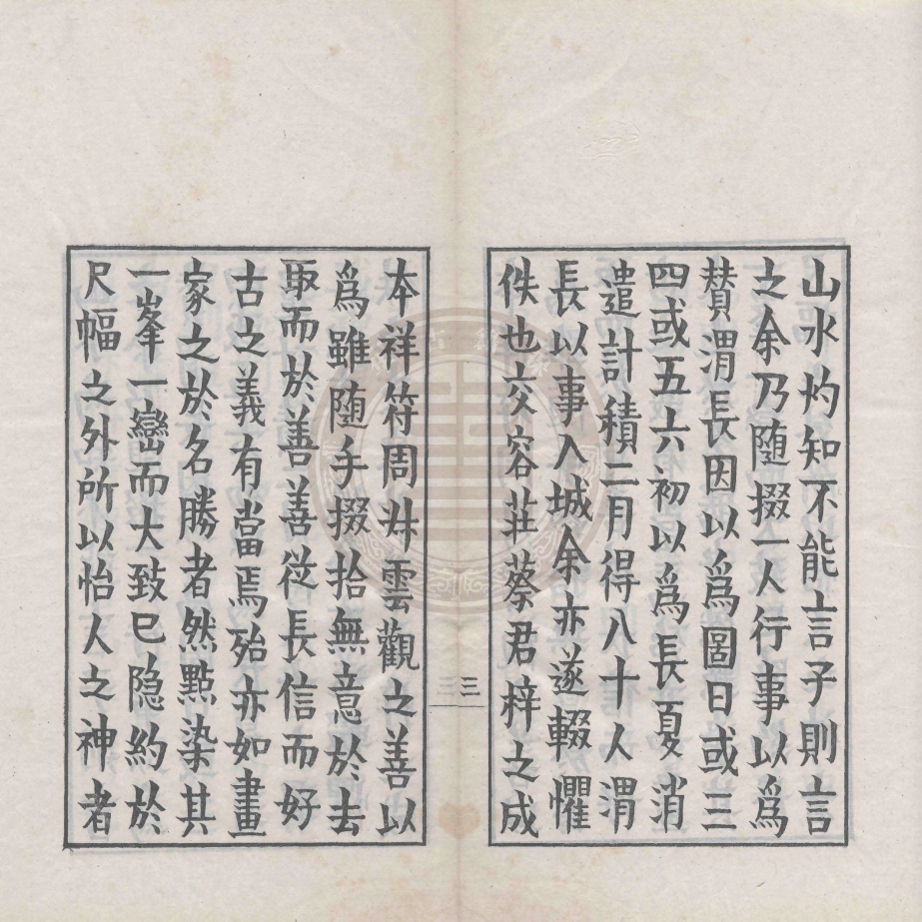 山水灼知不能言子則言
之余乃随掇一人行事以爲
賛渭長因以爲圖日或三
四或五六初以爲長夏消
遣計積二月得八十人渭
長以事入城余亦遂輟懼
佚也交容莊蔡君梓之成
三
本祥符周㕘雲觀之善以
爲雖随手掇拾無意於去
取而於善善從長信而好
古之義有當焉殆亦如畫
家之於名勝者然點染其
一峯一巒而大致已隐約於
尺幅之外所以怡人之神者